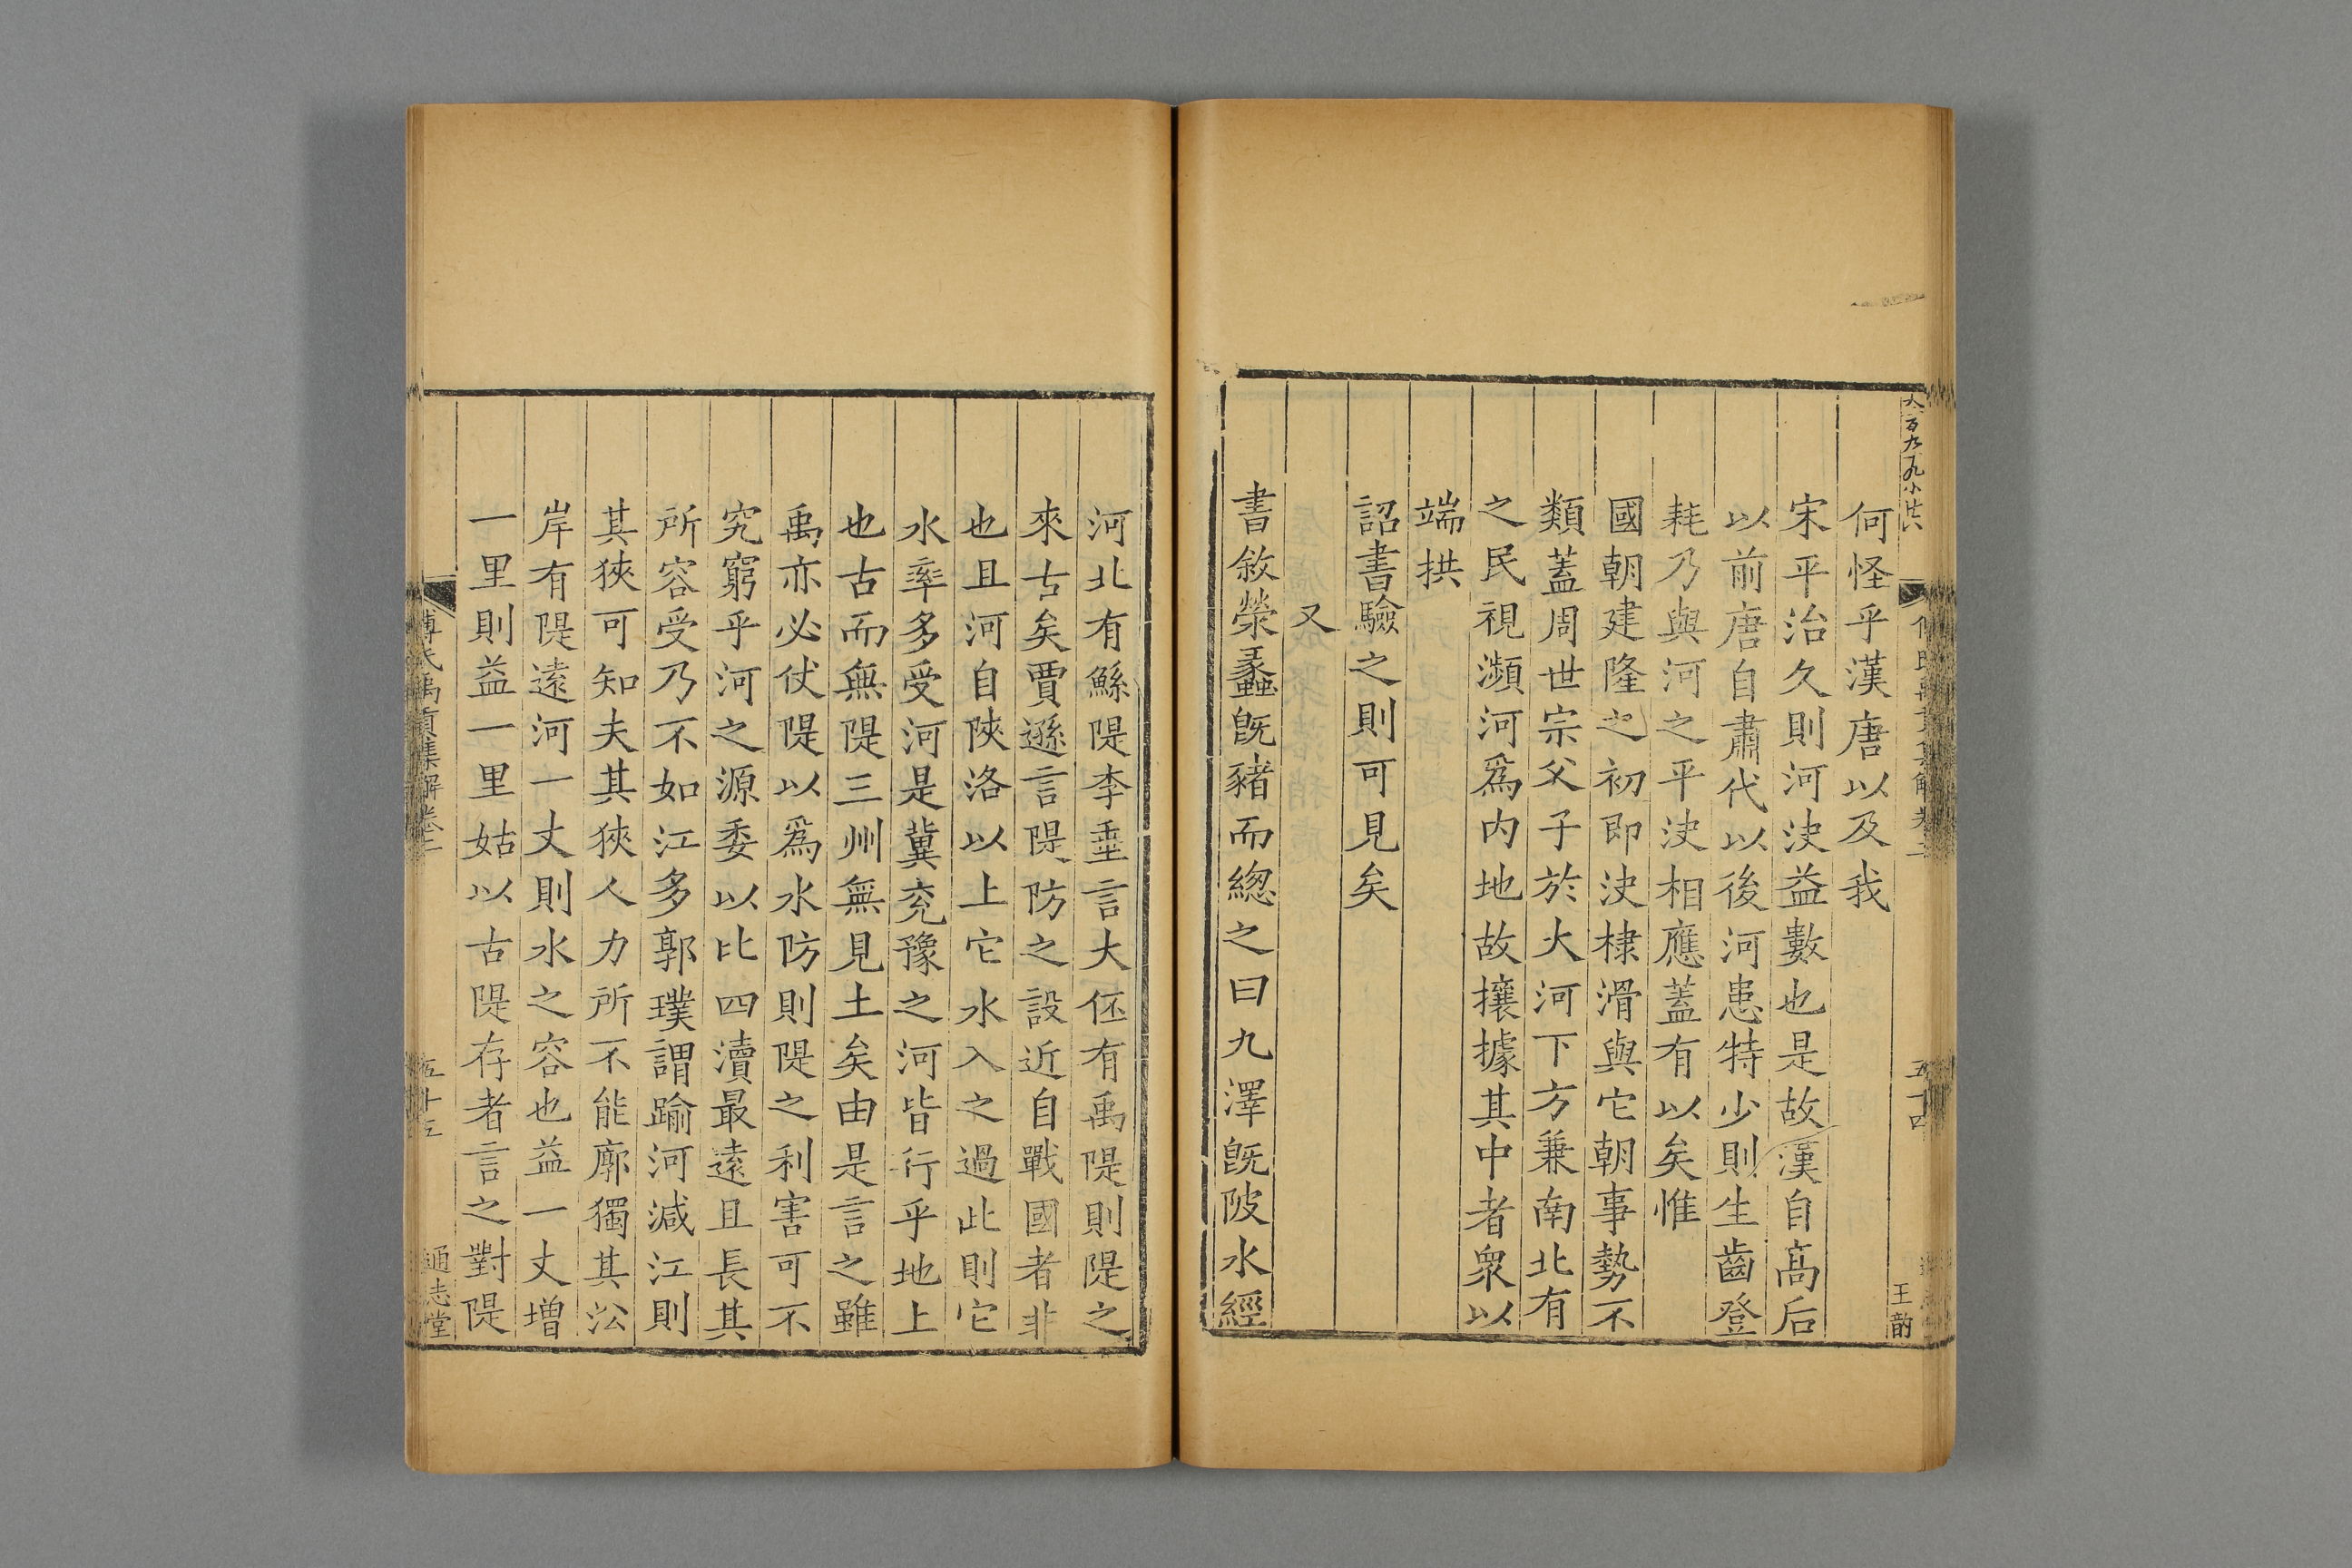 何怪乎漢唐以及我
宋平治久則河決益數也是故漢自高后
以前唐自肅代以後河患特少則生齒登
耗乃與河之平決相應蓋有以矣惟
國朝建隆之初即決棣滑與它朝事勢不
類蓋周世宗父子於大河下方兼南北有
之民視瀕河爲內地故攘據其中者衆以
端拱
詔書驗之則可見矣
又
書敘滎蠡旣豬而緫之曰九澤旣陂水經
五十四
王韵
河北有鯀隄李埀言大伾有禹隄則隄之
來古矣賈遜言隄防之設近自戰國者非
也且河自陜洛以上它水入之過此則它
水率多受河是冀兖豫之河皆行乎地上
也古而無隄三州無見土矣由是言之雖
禹亦必仗隄以爲水防則隄之利害可不
究窮乎河之源委以比四瀆最遠且長其
所容受乃不如江多郭璞謂踰河減江則
其狹可知夫其狹人力所不能廓獨其㳂
岸有隄遠河一丈則水之容也益一丈増
一里則益一里姑以古隄存者言之對隄
傅氏禹貢集解卷二
通志堂